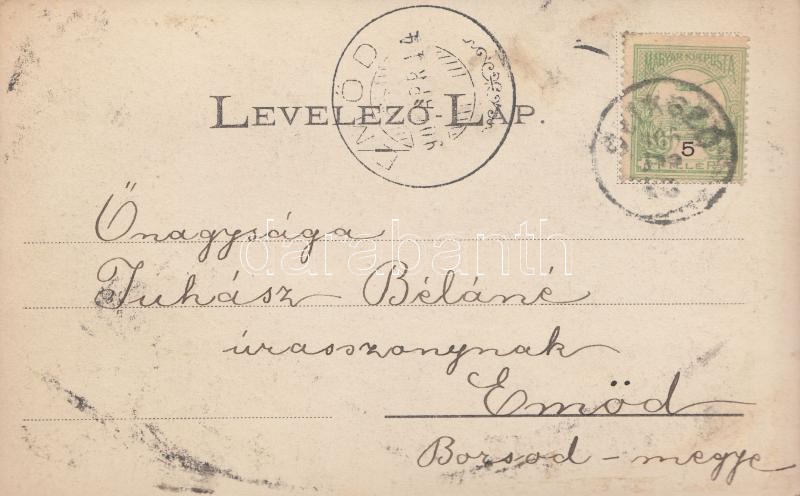 LEVELEZŐ-LAP.
EMŐD
901 APR 14
MAGYAR KIR. POSTA
5
FILLÉR
Őnagysága
Juhász Béláné
úrasszonynak
Emőd
Borsod-megye
darabanth